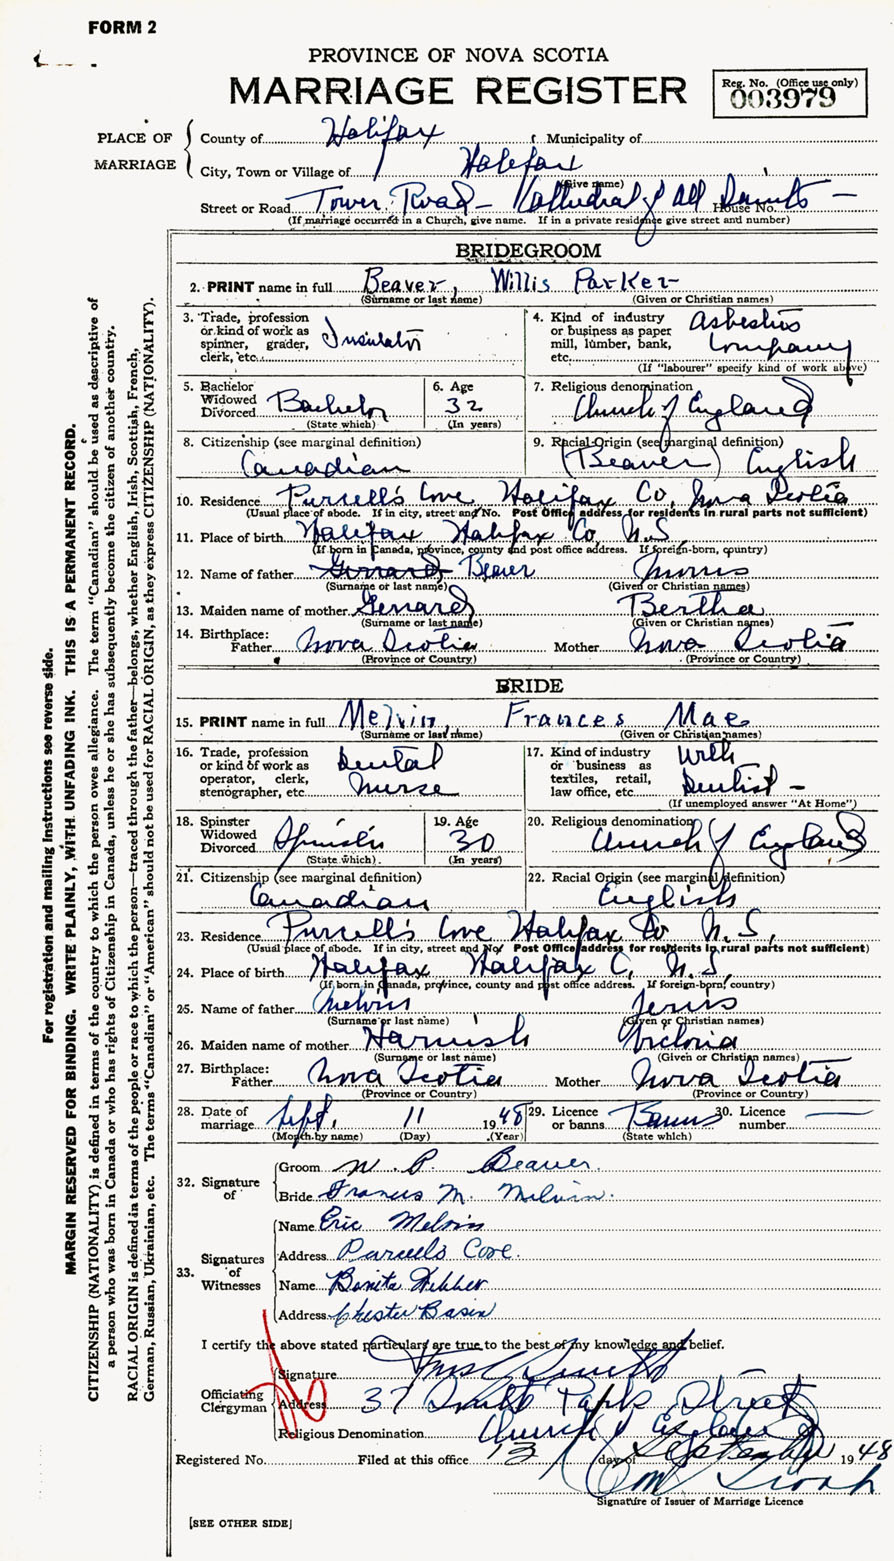 FORM 2
PROVINCE OF NOVA SCOTIA
MARRIAGE REGISTER
Reg. No. (Office use only)
003979
PLACE OF MARRIAGE
County of Halifax Municipality of
City, Town or Village of Halifax
(Give name)
Street or Road Tower Road - Cathedral of All Saints - House No.
(If marriage occurred in a Church, give name. If in a private residence give street and number)
BRIDEGROOM
2. PRINT name in full Beaver, Willis Parker
(Surname or last name) (Given or Christian names)
3. Trade, profession or kind of work as spinner, grader, clerk, etc. Insulator
4. Kind of industry or business as paper mill, lumber, bank, etc. Asbestos Company
(If "labourer" specify kind of work above)
5. Bachelor Widowed Divorced Bachelor
(State which)
6. Age 32
(In years)
7. Religious denomination Church of England
8. Citizenship (see marginal definition) Canadian
9. Racial Origin (see marginal definition) (Beaver) English
10. Residence Purcell's Cove Halifax Co, Nova Scotia
(Usual place of abode. If in city, street and No. Post Office address for residents in rural parts not sufficient)
11. Place of birth Halifax Halifax Co, N.S.
(If born in Canada, province, county and post office address. If foreign-born, country)
12. Name of father Gerrard Beaver Morris
(Surname or last name) (Given or Christian names)
13. Maiden name of mother Gerrard Bertha
(Surname or last name) (Given or Christian names)
14. Birthplace: Father Nova Scotia Mother Nova Scotia
(Province or Country) (Province or Country)
BRIDE
15. PRINT name in full Melvin, Frances Mae
(Surname or last name) (Given or Christian names)
16. Trade, profession or kind of work as operator, clerk, stenographer, etc Dental Nurse
17. Kind of industry or business as textiles, retail, law office, etc. With Dentist -
(If unemployed answer "At Home")
18. Spinster Widowed Divorced Spinster
(State which)
19. Age 30
(In years)
20. Religious denomination Church of England
21. Citizenship (see marginal definition) Canadian
22. Racial Origin (see marginal definition) English
23. Residence Purcell's Cove Halifax Co N.S,
(Usual place of abode. If in city, street and No. Post Office address for residents in rural parts not sufficient)
24. Place of birth Halifax Halifax C, N.S,
(If born in Canada, province, county and post office address. If foreign-born, country)
25. Name of father Melvin
(Surname or last name) (Given or Christian names)
26. Maiden name of mother Harnish Victoria
(Surname or last name) (Given or Christian names)
27. Birthplace: Father Nova Scotia Mother Nova Scotia
(Province or Country) (Province or Country)
28. Date of marriage Sept, 11 1948
(Month by name) (Day) (Year)
29. Licence or banns Banns
(State which)
30. Licence number
32. Signature of
Groom W. P. Beaver.
Bride Frances M. Melvin.
33. Signatures of Witnesses
Name Eric Melvin
Address Purcells Cove.
Name Bonita
Address Chester Basin
I certify the above stated particulars are true to the best of my knowledge and belief.
Officiating Clergyman
Signature
Address 37 Street
Religious Denomination Church of England
Registered No. Filed at this office 13 day of September 1948
Signature of Issuer of Marriage Licence
[SEE OTHER SIDE]
For registration and mailing instructions see reverse side.
MARGIN RESERVED FOR BINDING. WRITE PLAINLY, WITH UNFADING INK. THIS IS A PERMANENT RECORD.
CITIZENSHIP (NATIONALITY) is defined in terms of the country to which the person owes allegiance. The term "Canadian" should be used as descriptive of
a person who was born in Canada or who has rights of Citizenship in Canada, unless he or she has subsequently become the citizen of another country.
RACIAL ORIGIN is defined in terms of the people or race to which the person—traced through the father—belongs, whether English, Irish, Scottish, French,
German, Russian, Ukrainian, etc. The terms "Canadian" or "American" should not be used for RACIAL ORIGIN, as they express CITIZENSHIP (NATIONALITY).